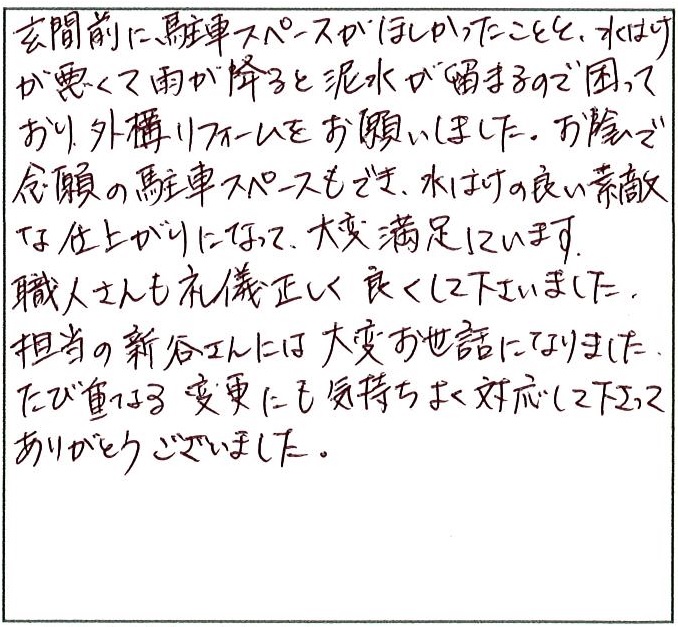 玄関前に、駐車スペースがほしかったことと、水はけ
が悪くて雨が降ると泥水が溜まるので困って
おり、外構リフォームをお願いしました。お陰で
念願の駐車スペースもでき、水はけの良い素敵
な仕上がりになって、大変満足しています。
職人さんも礼儀正しく良くして下さいました。
担当の新谷さんには大変お世話になりました。
たび重なる変更にも気持ちよく対応して下さって
ありがとうございました。